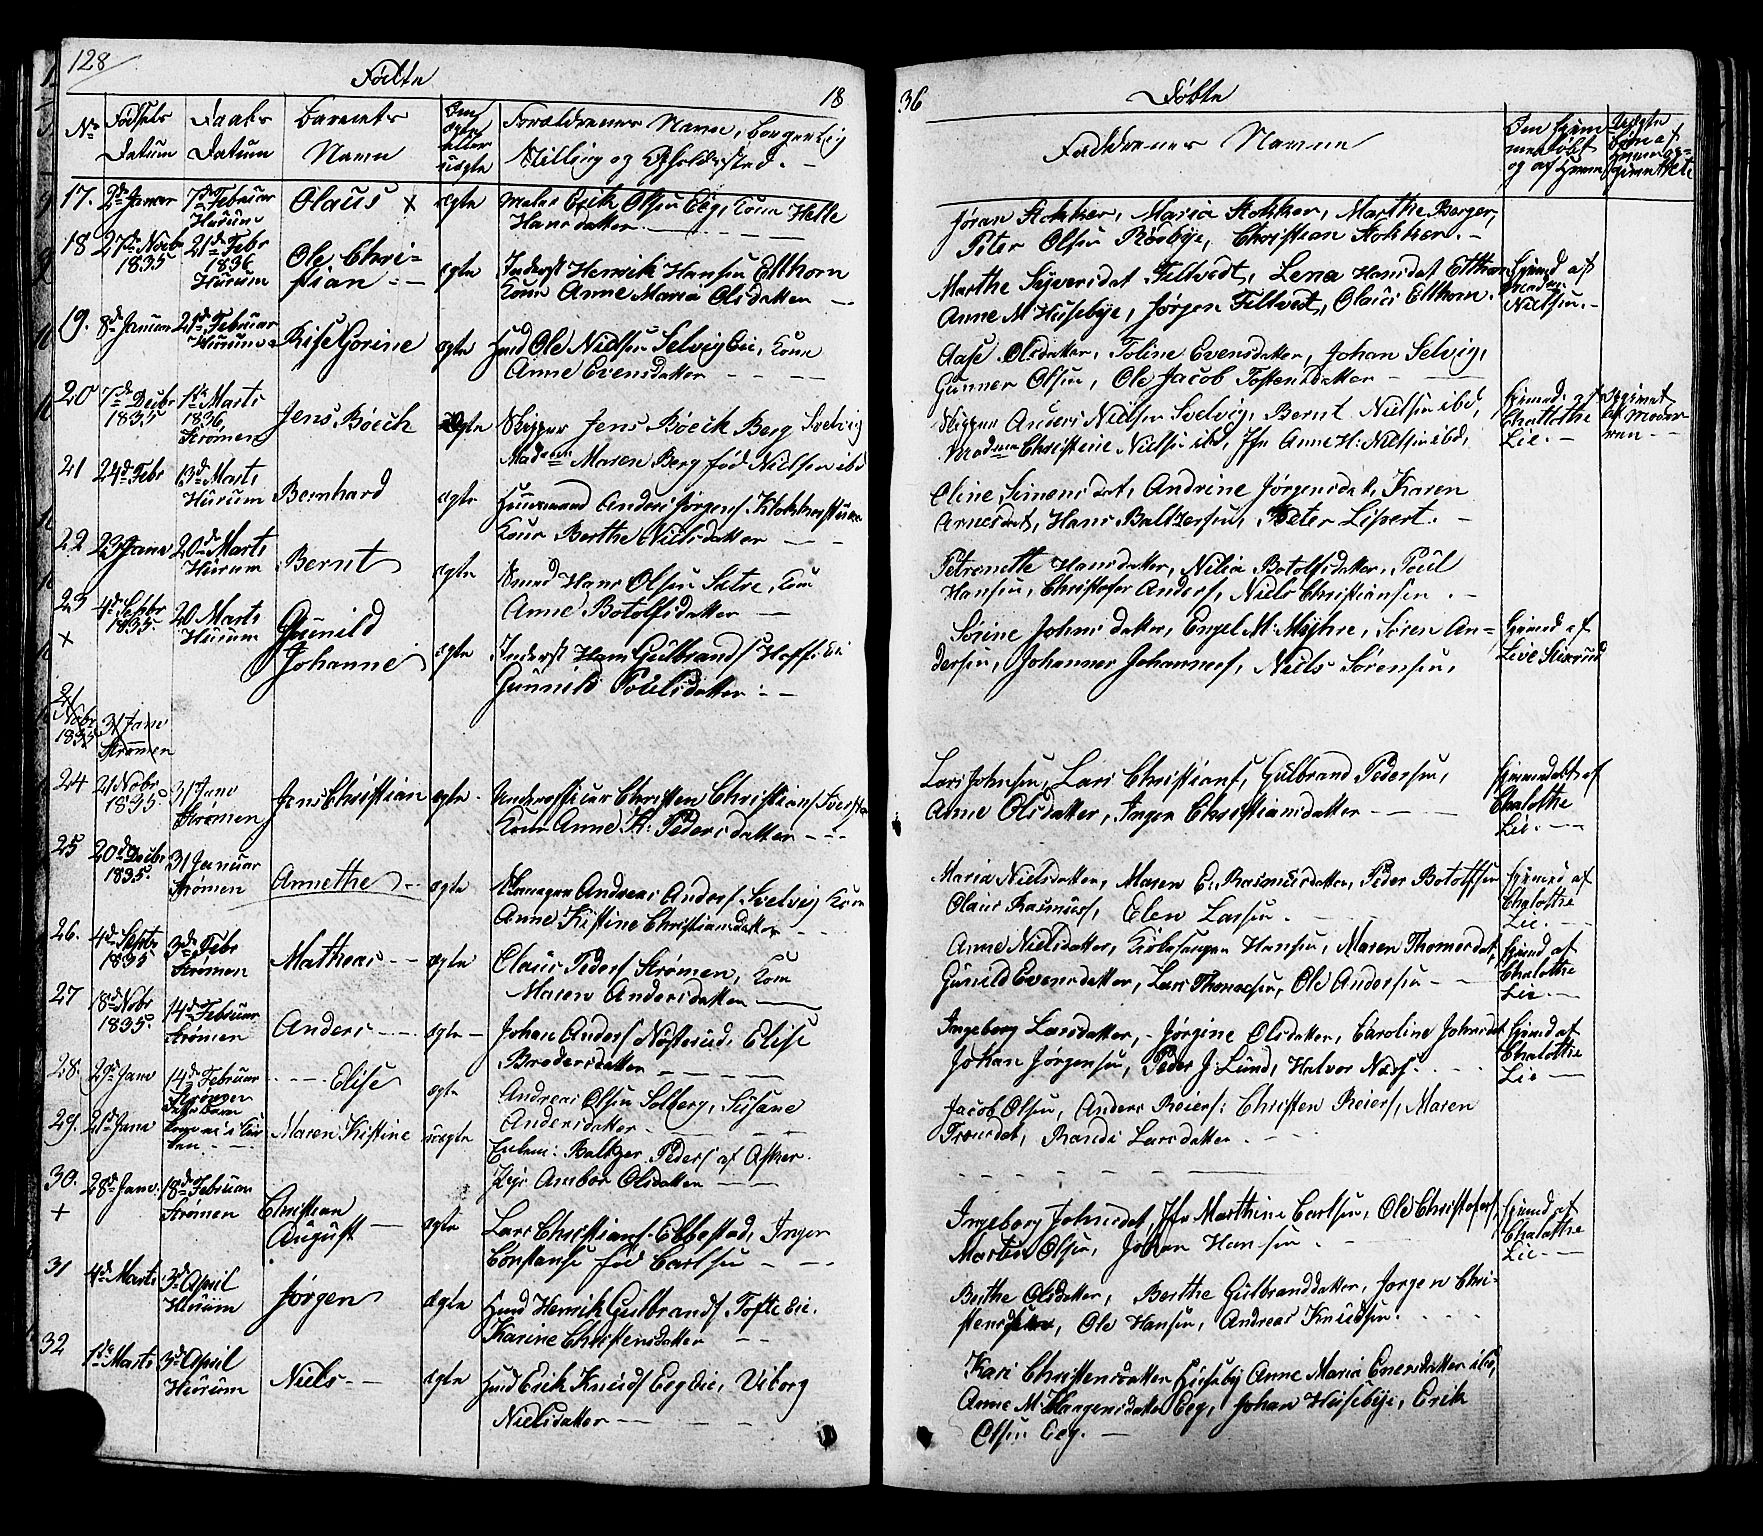 128
Födte
18
No
Födsels Datum
Daabs Datum
Barnets Navn
Om ægte eller uægte
Forældrenes Navn, borgerlig
Stilling og Opholdssted. -
17. 2den Januar 7de Februar Hurum Olaus x ægte Erik Olsen Eeg, Kone Helle
Hansdatter
18 27de Novbr 1835 21de Febr 1836 Hurum Ole Chri-
stian ægte Inderst Henrik Hansen Elthorn
Kone Anne Maria Olsdatter
19. 8de Januar 21de Februar Hurum Gorine ægte Huusd Ole Nielsen Selvig Eie, Kone
Anne Evensdatter
20 7de Decbr 1835 1ste Marts 1836, Strömen Jens Böeck ægte Skipper Jens Böeck Berg Svelvig
Madme Maren Berg fød Nielsen ibd
21 24de Febr 13de Marts Hurum Bernhard ægte Huusmand Anders Jörgens.
Kone Berthe Nielsdatter
22 23de Janv 20de Marts Hurum Bernt ægte Hans Olsen Sætre, Kone
Anne Botolfsdatter
23 x 4de Septbr 1835. 20 Marts Hurum Gunild
Johanne ægte Inderst Hans Gulbrands.
Gunnild Poulsdatter
21 Nobr 1835 31 Janv Strömen
24 21 Nobr 1835 31 Janv Strömen Jens Christian ægte Underofficeer Christen Christians.
Kone Anne K: Pedersdatter
25 20de Decbr 1835. 31 Januar Strömen Annethe ægte Andreas Anders. Svelvig Kone
Anne Kistine Christiansdatter
26. 4de Septbr 1835 3de Febr Strömen Mathias ægte Claus Peders. Strömen, Kone
Maren Andersdatter
27 18de Nobr 1835. 14de Februar Strömen Anders ægte Johan Anders. Nösterud, Elise
Bredersdatter
28. 29de Janv 14de Februar Strömen Elise ægte Andreas Olsen Solberg, Susane
Andersdatter
29. 21de Janv Maren Kistine uægte Baltzer Peders. af Asker.
Pige Ambor Olsdatter
30. + 28de Janv. 18de Februar Strömen Christian
August ægte Lars Christians. Ebbestad, Inger
Constanse fød Carlsen
31 4de Marts 3de April Hurum Jörgen ægte Huusd Henrik Gulbrands. Tofte Eie.
Karine Christensdatter
32 1ste Marts 3de April Hurum Niels ægte Huusd Erik Knuds. Eeg Eie, Viborg
Nielsdatter
36
Döbte
Faddernes Navne
Om hjemmedöbt og af hvem
Jöran Stokker, Maria Stokker, Marthe Berger,
Peter Olsen Röebye, Christian Stokker. -
Marthe Syversdat Filtvedt, Lena Hansdat Elthorn
Anne M Husebye, Jörgen Filtvedt, Olaus Elthorn.
Hjemd af Madm Nielsen. -
Aase Olsdatter, Toline Evensdatter, Johan Selvig,
Gunner Olsen, Ole Jacob Tostensdatter
Skipper Anders Nielsen Svelvig, Bernt Nielsen ibd,
Madme Christine Nielsen ibd, Jfr Anne H: Nielsen ibd,
Hjemd. af Chalotthe Lie. -
Eline Simensdat, Andrine Jörgensdat, Karen
Arnesdat, Hans Baltzersen, Peter Lipert. -
Petronette Hansdatter, Nilia Botolfsdatter, Poul
Hansen, Christofer Anders, Niels Christiansen. -
Sörine Johnsdatter, Engel M: Myhre, Sören An-
dersen, Johannes Johannes., Niels Sörensen,
Hjemd af Live
Lars Johnsen, Lars Christians., Gulbrand Pedersen,
Anne Olsdatter, Inger Christiansdatter
Hjemmedöbt af Chalotthe Lie. -
Maria Nielsdatter, Maren E. Rasmusdatter, Peder Botolfsen
Olaus Rasmus., Elen Larsen.
Hjemd af Chalotthe Lie. -
Anne Nielsdatter, Hansen, Maren Thomesdat,
Gunild Evensdatter, Lars Thomesen, Ole Andersen
Hjemd af Chalotthe Lie. -
Ingeborg Larsdatter, Jörgine Olsdatter, Caroline Johnsdat
Johan Jörgensen, Peder J: Lund, Halvor
Hjemd af Chalotthe Lie -
Jacob Olsen, Anders Reiers: Christen Reiers, Maren
Randi Larsdatter.
Ingeborg Johnsdat, Jfr Marthine Carlsen, Ole Christofers.,
Marten Olsen, Johan Hansen.
Hjemd af Chalotthe Lie. -
Berthe Olsdatter, Berthe Gulbrandsdatter, Jorgen Chri-
stensen, Ole Hansen, Andreas Knudsen.
Kari Christensdatter Huseby Anne Maria Evensdatter ibd,
Anne M. Haagensdatter Eeg, Johan Husebye, Erik
Olsen Eeg. -